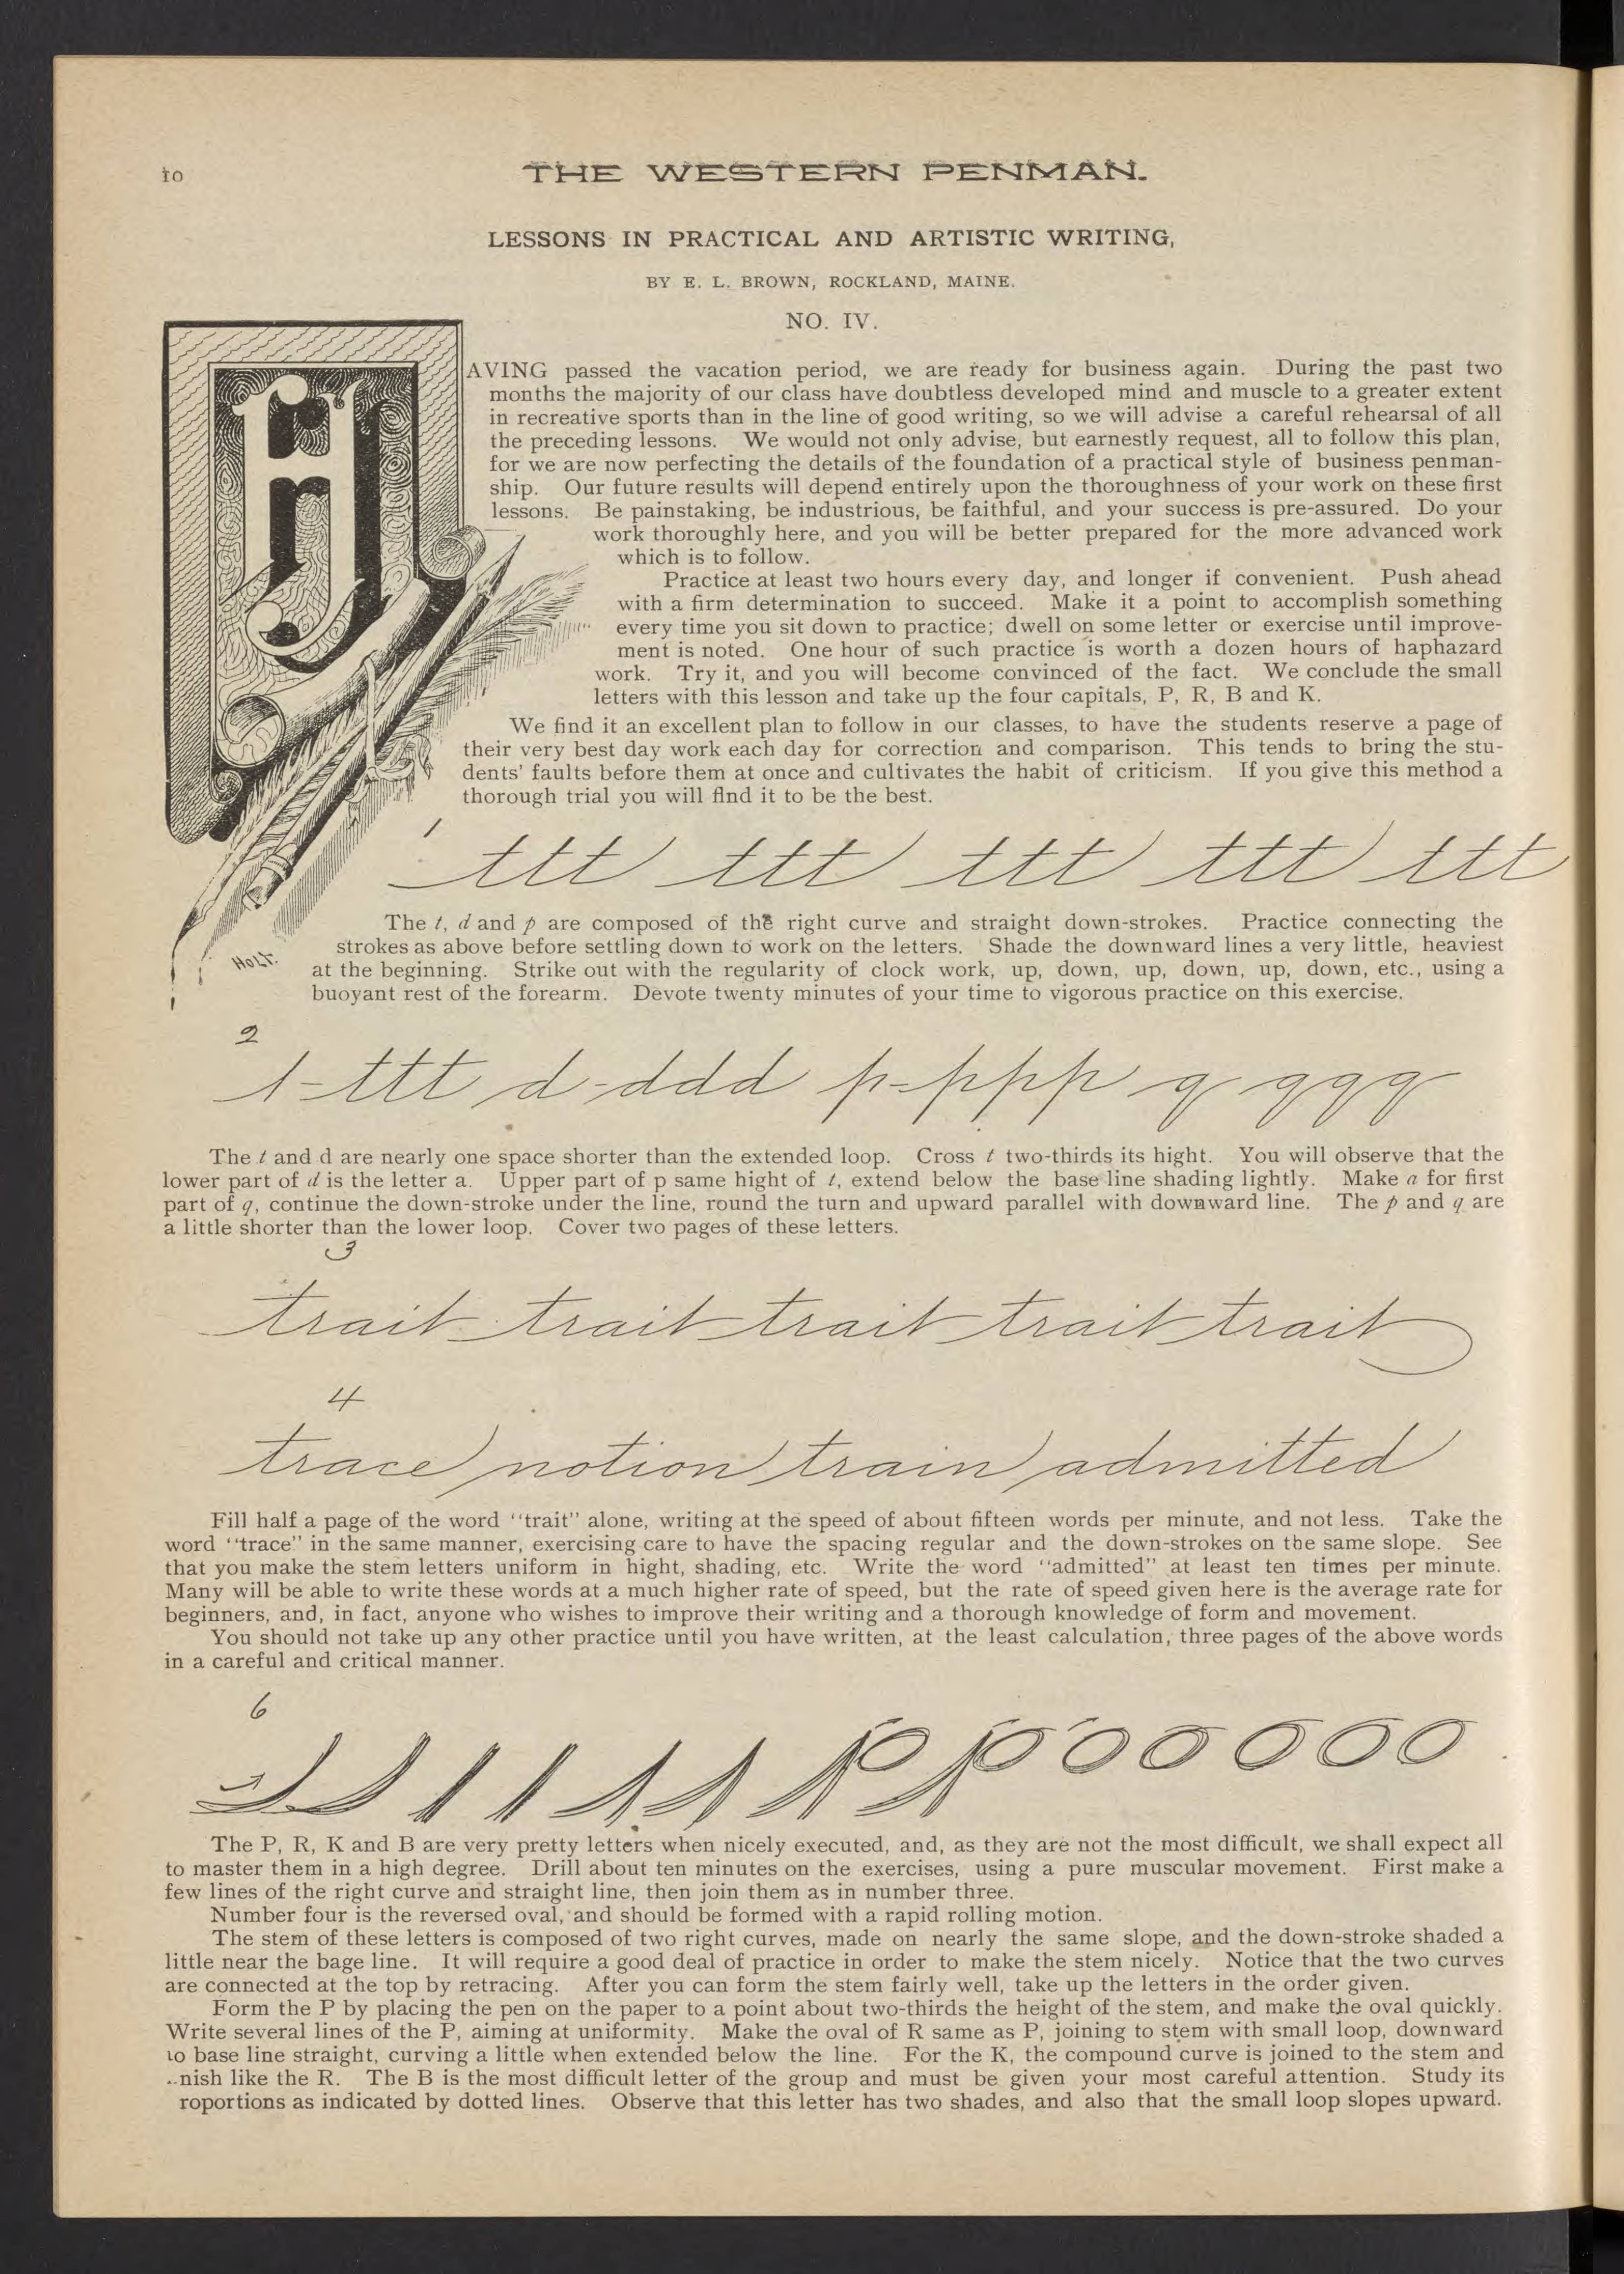 10
THE WESTERN PENMAN.
LESSONS IN PRACTICAL AND ARTISTIC WRITING,
BY E. L. BROWN, ROCKLAND, MAINE.
NO. IV.
HAVING passed the vacation period, we are ready for business again. During the past two
months the majority of our class have doubtless developed mind and muscle to a greater extent
in recreative sports than in the line of good writing, so we will advise a careful rehearsal of all
the preceding lessons. We would not only advise, but earnestly request, all to follow this plan,
for we are now perfecting the details of the foundation of a practical style of business penman-
ship. Our future results will depend entirely upon the thoroughness of your work on these first
lessons. Be painstaking, be industrious, be faithful, and your success is pre-assured. Do your
work thoroughly here, and you will be better prepared for the more advanced work
which is to follow.
Practice at least two hours every day, and longer if convenient. Push ahead
with a firm determination to succeed. Make it a point to accomplish something
every time you sit down to practice; dwell on some letter or exercise until improve-
ment is noted. One hour of such practice is worth a dozen hours of haphazard
work. Try it, and you will become convinced of the fact. We conclude the small
letters with this lesson and take up the four capitals, P, R, B and K.
We find it an excellent plan to follow in our classes, to have the students reserve a page of
their very best day work each day for correction and comparison. This tends to bring the stu-
dents' faults before them at once and cultivates the habit of criticism. If you give this method a
thorough trial you will find it to be the best.
1
ttt ttt ttt ttt ttt
The t, d and p are composed of the right curve and straight down-strokes. Practice connecting the
strokes as above before settling down to work on the letters. Shade the downward lines a very little, heaviest
HOLT.
at the beginning. Strike out with the regularity of clock work, up, down, up, down, up, down, etc., using a
buoyant rest of the forearm. Devote twenty minutes of your time to vigorous practice on this exercise.
2
t-ttt d-ddd p-ppp q qqq
The t and d are nearly one space shorter than the extended loop. Cross t two-thirds its hight. You will observe that the
lower part of d is the letter a. Upper part of p same hight of t, extend below the base line shading lightly. Make a for first
part of q, continue the down-stroke under the line, round the turn and upward parallel with downward line. The p and q are
a little shorter than the lower loop. Cover two pages of these letters.
3
trait trait trait trait trait
4
trace notion train admitted
Fill half a page of the word "trait" alone, writing at the speed of about fifteen words per minute, and not less. Take the
word "trace" in the same manner, exercising care to have the spacing regular and the down-strokes on the same slope. See
that you make the stem letters uniform in hight, shading, etc. Write the word "admitted" at least ten times per minute.
Many will be able to write these words at a much higher rate of speed, but the rate of speed given here is the average rate for
beginners, and, in fact, anyone who wishes to improve their writing and a thorough knowledge of form and movement.
You should not take up any other practice until you have written, at the least calculation, three pages of the above words
in a careful and critical manner.
6
The P, R, K and B are very pretty letters when nicely executed, and, as they are not the most difficult, we shall expect all
to master them in a high degree. Drill about ten minutes on the exercises, using a pure muscular movement. First make a
few lines of the right curve and straight line, then join them as in number three.
Number four is the reversed oval, and should be formed with a rapid rolling motion.
The stem of these letters is composed of two right curves, made on nearly the same slope, and the down-stroke shaded a
little near the bage line. It will require a good deal of practice in order to make the stem nicely. Notice that the two curves
are connected at the top by retracing. After you can form the stem fairly well, take up the letters in the order given.
Form the P by placing the pen on the paper to a point about two-thirds the height of the stem, and make the oval quickly.
Write several lines of the P, aiming at uniformity. Make the oval of R same as P, joining to stem with small loop, downward
to base line straight, curving a little when extended below the line. For the K, the compound curve is joined to the stem and
nish like the R. The B is the most difficult letter of the group and must be given your most careful attention. Study its
roportions as indicated by dotted lines. Observe that this letter has two shades, and also that the small loop slopes upward.